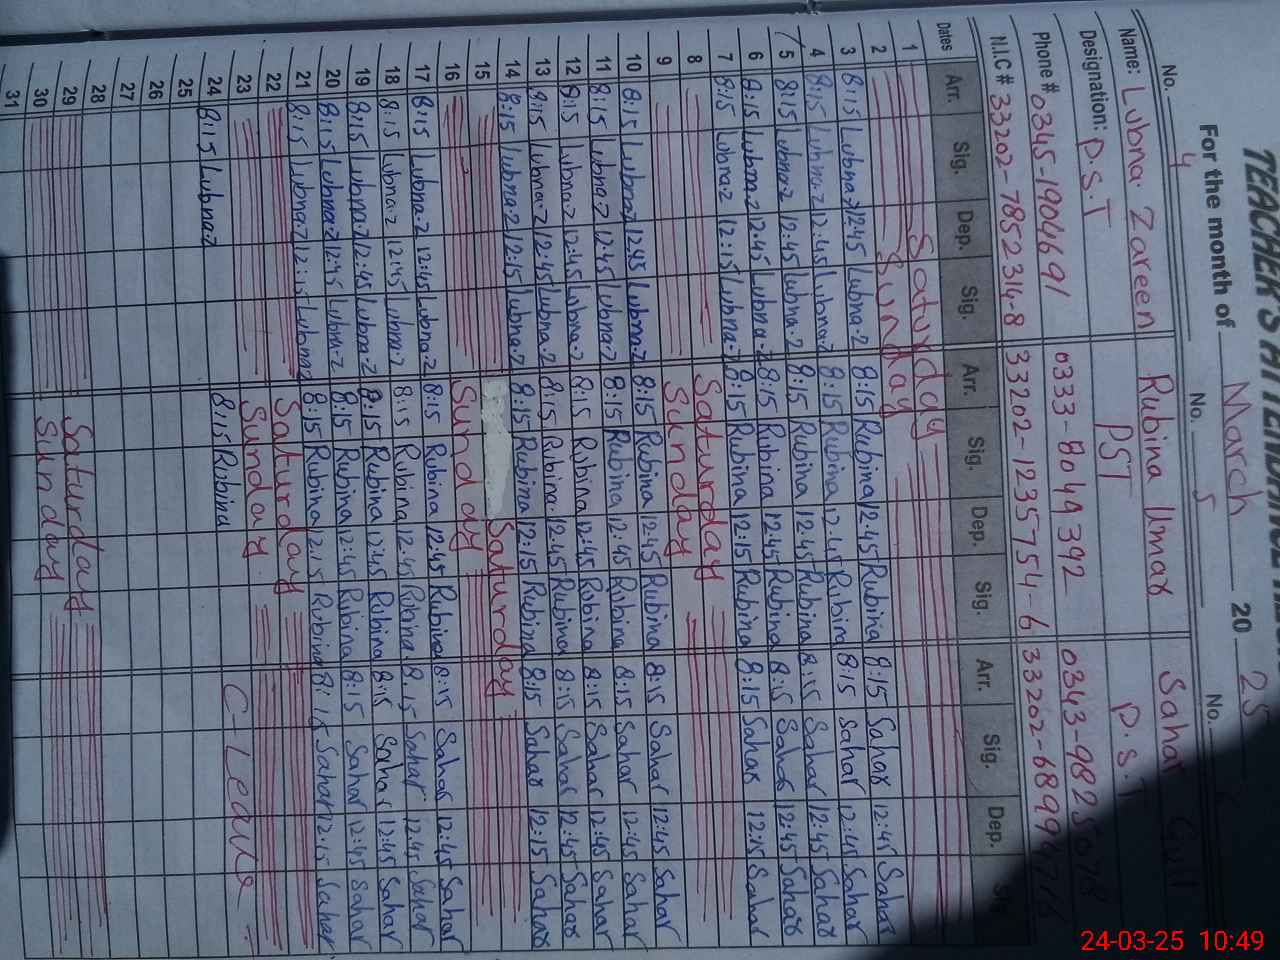 TEACHER'S ATTENDANCE
For the month of March 20 25
No. 4 No. 5 No.
Name: Lubna Zareen Rubina Umar Sahar Gull
Designation: P.S.T PST P.S.T
Phone # 0345-1904691 0333-8049392 0343-9825078
N.I.C # 33202-7852314-8 33202-1235754-6
Dates Arr. Sig. Dep. Sig. Arr. Sig. Dep. Sig. Arr. Sig. Dep.
1 Saturday
2 Sunday
3 8:15 Lubna.Z 12:45 Lubna.Z 8:15 Rubina 12:45 Rubina 8:15 Sahar 12:45 Sahar
4 8:15 Lubna.Z 12:45 Lubna.Z 8:15 Rubina 12:45 Rubina 8:15 Sahar 12:45 Sahar
5 8:15 Lubna.Z 12:45 Lubna.Z 8:15 Rubina 12:45 Rubina 8:15 Sahar 12:45 Sahar
6 8:15 Lubna.Z 12:45 Lubna.Z 8:15 Rubina 12:45 Rubina 8:15 Sahar 12:45 Sahar
7 8:15 Lubna.Z 12:15 Lubna.Z 8:15 Rubina 12:15 Rubina 8:15 Sahar 12:15 Sahar
8 Saturday
9 Sunday
10 8:15 Lubna.Z 12:45 Lubna.Z 8:15 Rubina 12:45 Rubina 8:15 Sahar 12:45 Sahar
11 8:15 Lubna.Z 12:45 Lubna.Z 8:15 Rubina 12:45 Rubina 8:15 Sahar 12:45 Sahar
12 8:15 Lubna.Z 12:45 Lubna.Z 8:15 Rubina 12:45 Rubina 8:15 Sahar 12:45 Sahar
13 8:15 Lubna.Z 12:45 Lubna.Z 8:15 Rubina 12:45 Rubina 8:15 Sahar 12:45 Sahar
14 8:15 Lubna.Z 12:15 Lubna.Z 8:15 Rubina 12:15 Rubina 8:15 Sahar 12:15 Sahar
15 Saturday
16 Sunday
17 8:15 Lubna.Z 12:45 Lubna.Z 8:15 Rubina 12:45 Rubina 8:15 Sahar 12:45 Sahar
18 8:15 Lubna.Z 12:45 Lubna.Z 8:15 Rubina 12:45 Rubina 8:15 Sahar 12:45 Sahar
19 8:15 Lubna.Z 12:45 Lubna.Z 8:15 Rubina 12:45 Rubina 8:15 Sahar 12:45 Sahar
20 8:15 Lubna.Z 12:45 Lubna.Z 8:15 Rubina 12:45 Rubina 8:15 Sahar 12:45 Sahar
21 8:15 Lubna.Z 12:15 Lubna.Z 8:15 Rubina 12:15 Rubina 8:15 Sahar 12:15 Sahar
22 Saturday
23 Sunday
24 8:15 Lubna.Z 8:15 Rubina C-Leave
25
26
27
28
29 Saturday
30 Sunday
31
24-03-25 10:49